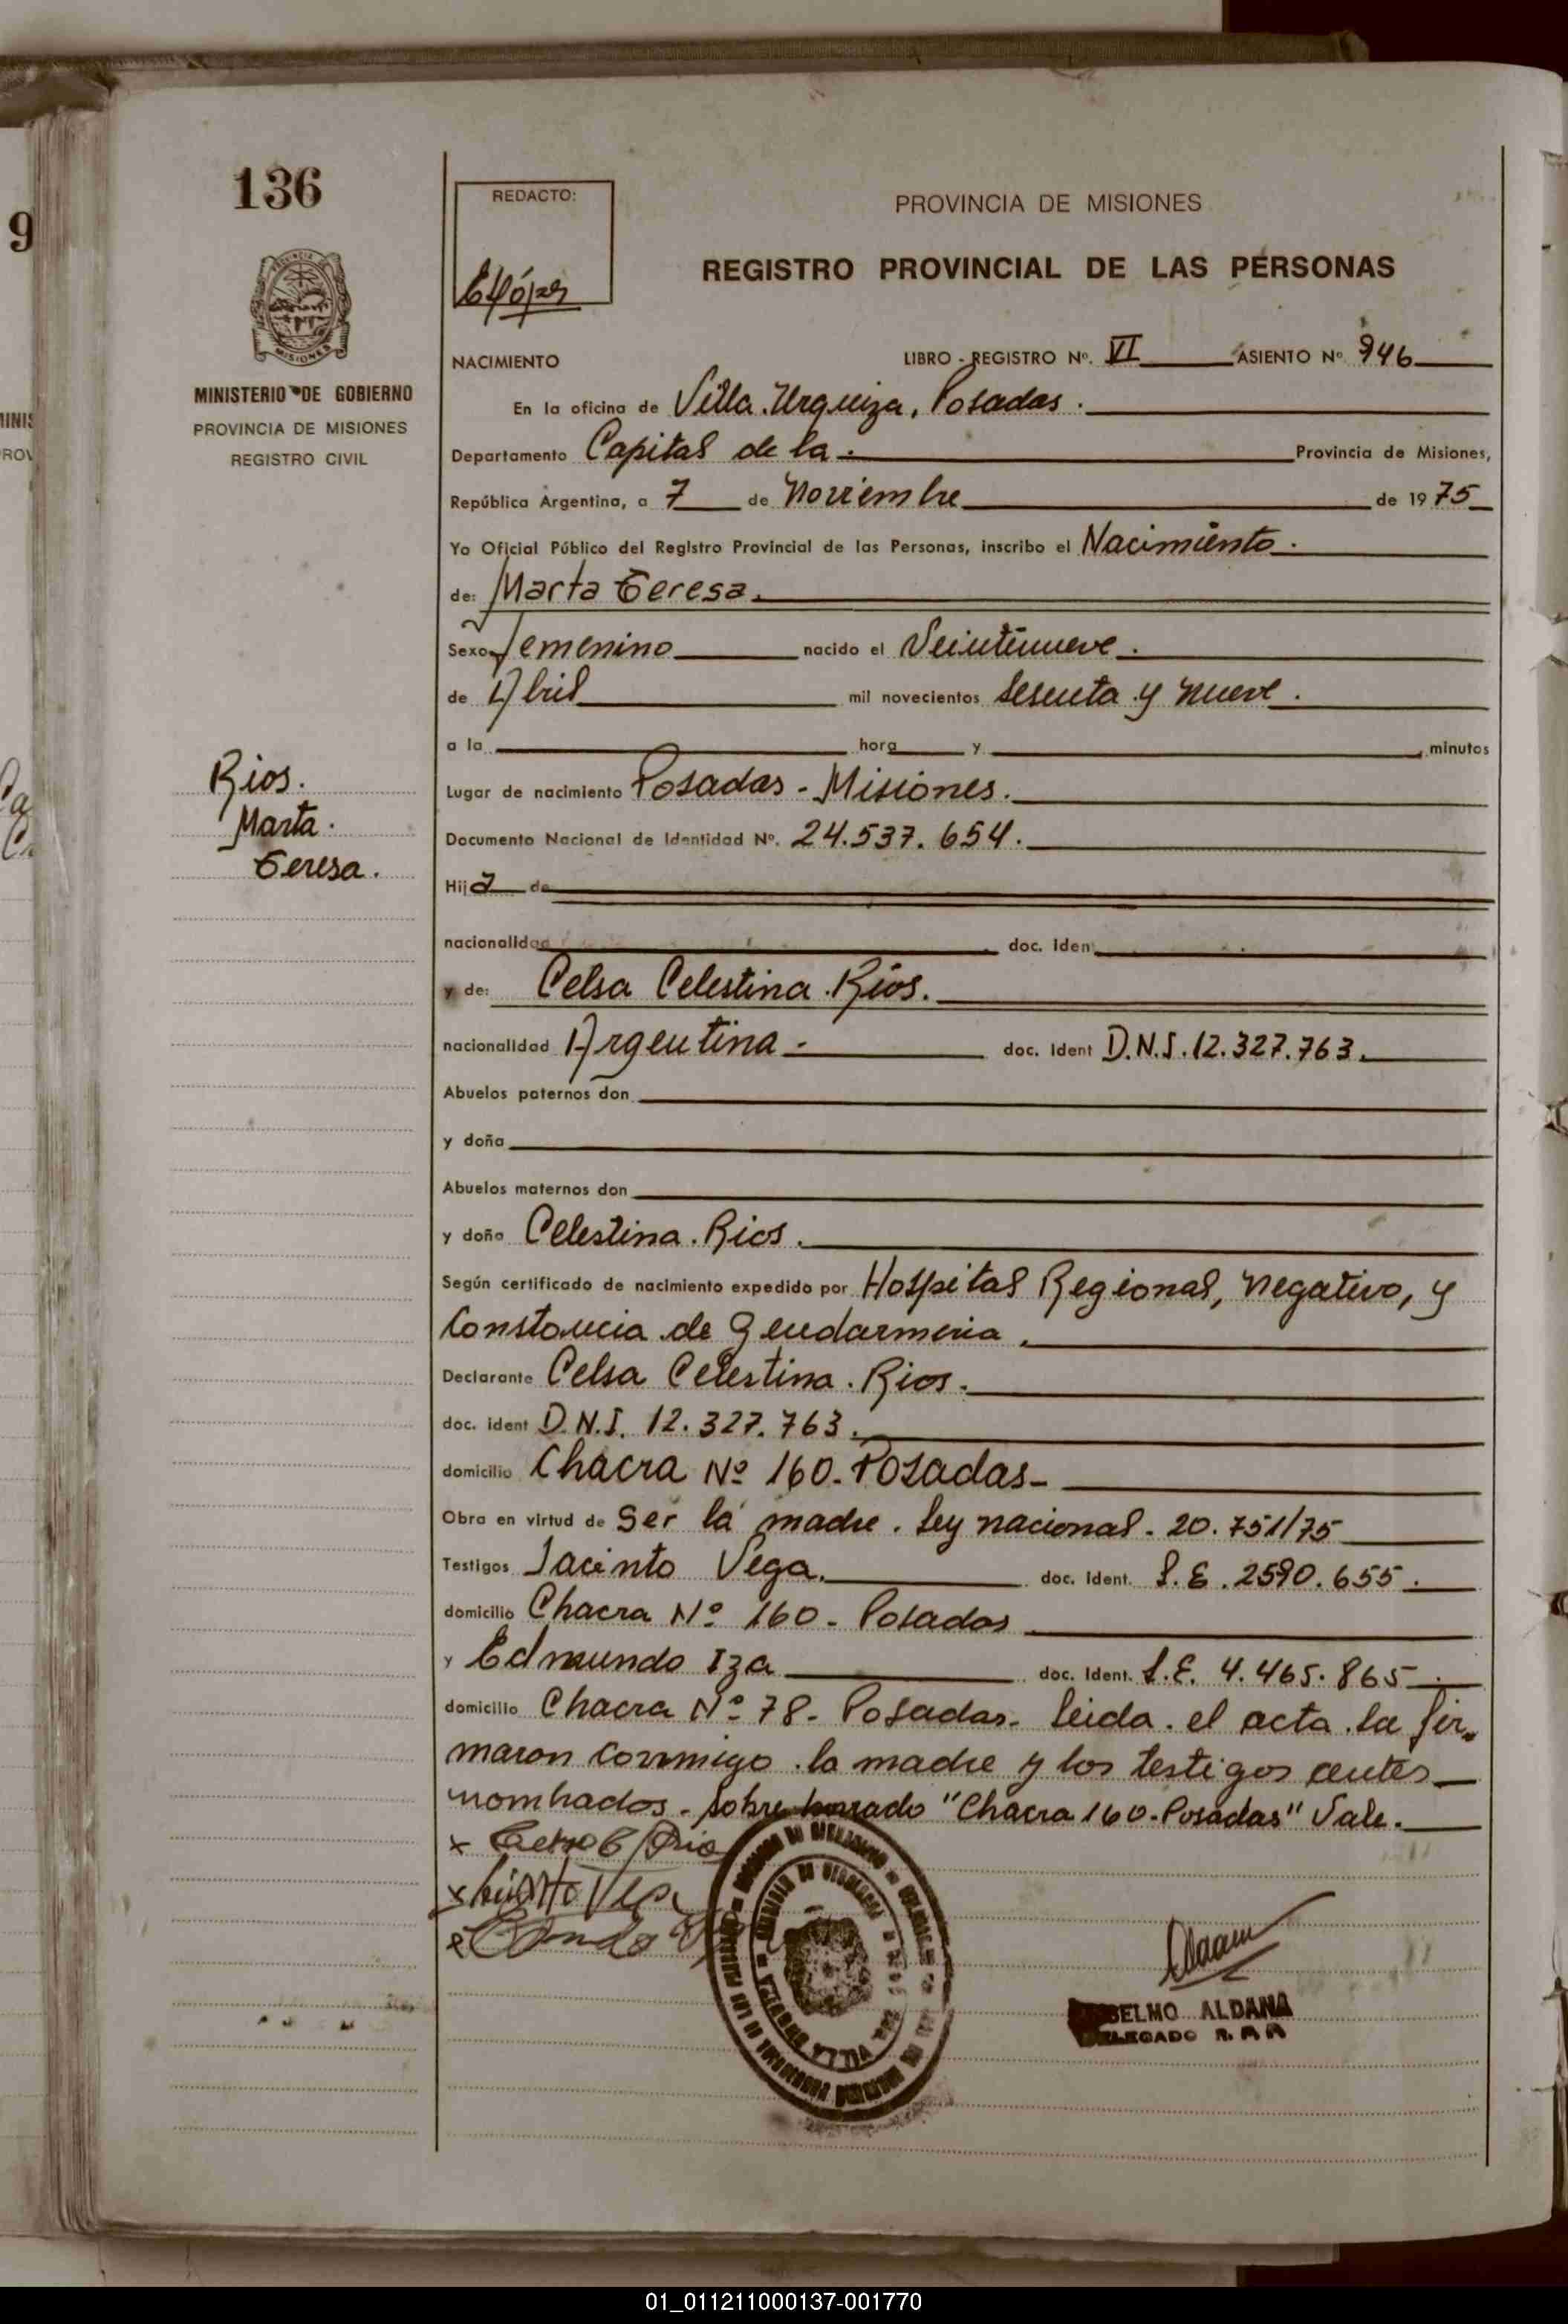 136
MINISTERIO DE GOBIERNO
PROVINCIA DE MISIONES
REGISTRO CIVIL
Rios.
Marta.
Teresa.
REDACTO:
PROVINCIA DE MISIONES
REGISTRO PROVINCIAL DE LAS PERSONAS
NACIMIENTO LIBRO - REGISTRO Nº. VI ASIENTO Nº 946
En la oficina de Villa Urquiza, Posadas.
Departamento Capital de la. Provincia de Misiones,
República Argentina, a 7 de Noviembre de 1975
Yo Oficial Público del Registro Provincial de las Personas, inscribo el Nacimiento.
de: Marta Teresa.
Sexo Femenino nacido el Veintinueve.
de Abril mil novecientos Sesenta y nueve.
a la hora y minutos
Lugar de nacimiento Posadas - Misiones.
Documento Nacional de Identidad Nº. 24.537.654.
Hija de
nacionalidad doc. iden
y de: Celsa Celestina Rios.
nacionalidad Argentina - doc. Ident D.N.I. 12.327.763.
Abuelos paternos don
y doña
Abuelos maternos don
y doña Celestina Rios.
Según certificado de nacimiento expedido por Hospital Regional, negativo, y
Constancia de Gendarmeria.
Declarante Celsa Celestina Rios.
doc. ident D.N.I. 12.327.763.
domicilio Chacra Nº 160. Posadas-
Obra en virtud de Ser la madre. Ley nacional - 20.751/75
Testigos Jacinto Vega. doc. Ident. L.E. 2590.655.
domicilio Chacra Nº 160 - Posadas
y Edmundo Iza doc. Ident. L.E. 4.465.865.
domicilio Chacra Nº 78 - Posadas - leida el acta la fir-
maron conmigo la madre y los testigos antes
nombrados. Sobre borrado "Chacra 160-Posadas" Vale.
SELMO ALDANA
DELEGADO R.
VILLA URQUIZA
01_011211000137-001770